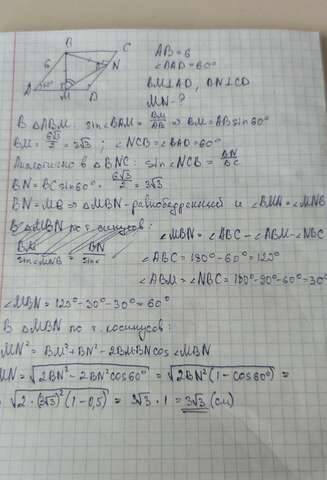 B C
6 N
A 60° M D
AB=6
∠BAD=60°
BM⊥AD, BN⊥CD
MN-?
В ΔABM: sin∠BAM = BM/AB ⇒ BM = AB sin60°
BM = 6√3/2 = 3√3; ∠NCB = ∠BAD = 60°
Аналогично в ΔBNC: sin∠NCB = BN/BC
BN = BC sin60° = 6√3/2 = 3√3
BN = MB ⇒ ΔMBN - равнобедренный и ∠BMN = ∠MNB
В ΔMBN по т. синусов:
BM/sin∠MNB = BN/sin
∠MBN = ∠ABC - ∠ABM - ∠NBC
∠ABC = 180° - 60° = 120°
∠ABM = ∠NBC = 180° - 90° - 60° = 30°
∠MBN = 120° - 30° - 30° = 60°
В ΔMBN по т. косинусов:
MN² = BM² + BN² - 2BM·BN cos∠MBN
MN = √(2BN² - 2BN² cos60°) = √(2BN²(1 - cos60°)) =
√(2·(3√3)²(1 - 0,5)) = 3√3 · 1 = 3√3 (см)